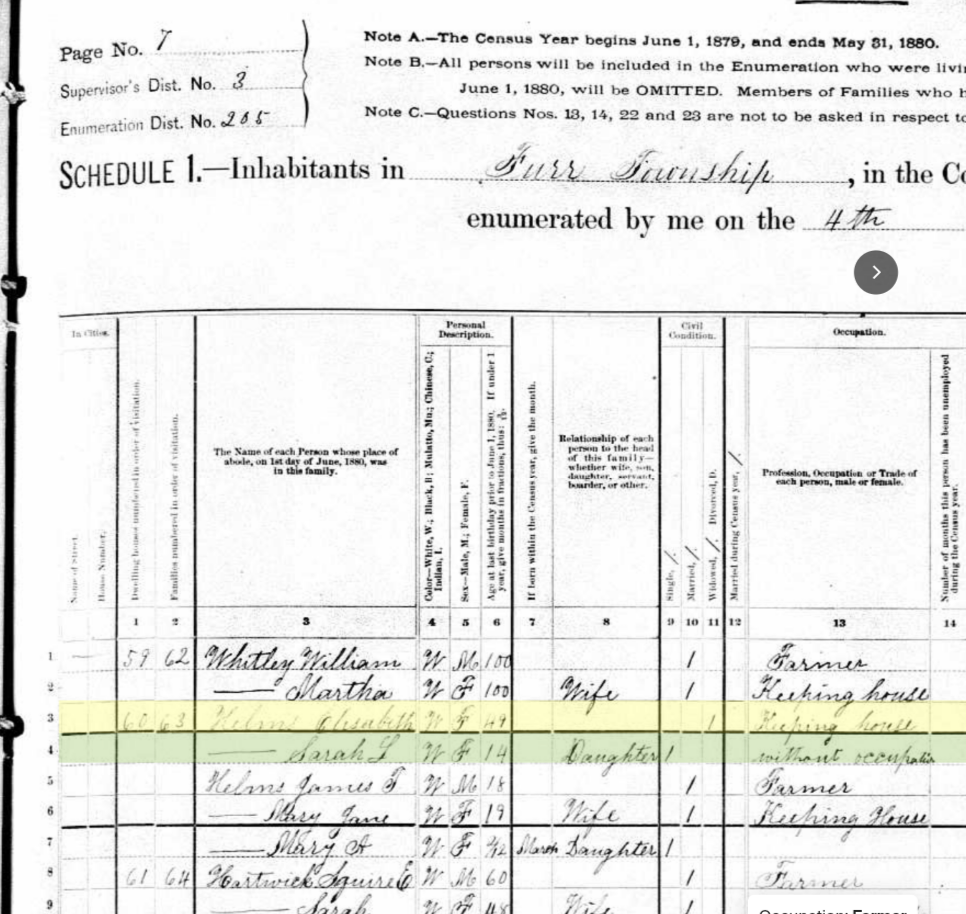 Page No. 7
Supervisor's Dist. No. 3
Enumeration Dist. No. 205
Note A.—The Census Year begins June 1, 1879, and ends May 31, 1880.
Note B.—All persons will be included in the Enumeration who were livi
June 1, 1880, will be OMITTED. Members of Families who h
Note C.—Questions Nos. 13, 14, 22 and 23 are not to be asked in respect to
SCHEDULE 1.—Inhabitants in Furr Township, in the Co
enumerated by me on the 4th
In Cities.
Name of Street.
House Number.
Dwelling houses numbered in order of visitation.
Families numbered in order of visitation.
The Name of each Person whose place
of abode, on 1st day of June, 1880, was
in this family.
Personal
Description.
Color—White, W.; Black, B.; Mulatto, Mu.; Chinese, C.;
Indian, I.
Sex—Male, M.; Female, F.
Age at last birthday prior to June 1, 1880. If under 1
year, give months in fractions, thus:
If born within the Census year, give the month.
Relationship of each
person to the head
of this family—
whether wife, son,
daughter, servant,
boarder, or other.
Civil
Condition.
Single, /.
Married, /.
Widowed, /. Divorced, D.
Married during Census year, /.
Occupation.
Profession, Occupation or Trade of
each person, male or female.
Number of months this person has been unemployed
during the Census year.
1 2 3 4 5 6 7 8 9 10 11 12 13 14
1 — 59 62 Whitley William W M 100 1 Farmer
2 — Martha W F 100 Wife 1 Keeping house
3 60 63 Helms Elisabeth W F 49 1 Keeping house
4 — Sarah L W F 14 Daughter 1 without occupation
5 Helms James T W M 18 1 Farmer
6 — Mary Jane W F 19 Wife 1 Keeping House
7 — Mary A W F March Daughter 1
8 61 64 Hartwick Squire W M 60 1 Farmer
9 — Sarah W F 48 Wife 1
Occupation: Farmer